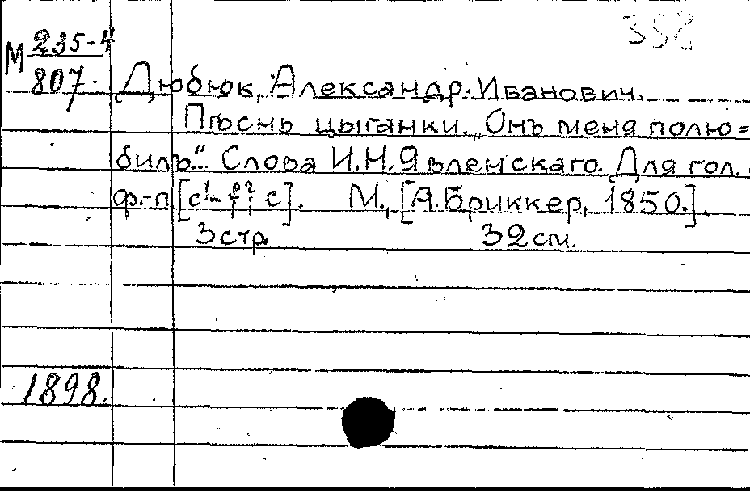 352
М 235-4
807
Дюбюк, Александр Иванович.
Пѣснь цыганки. „Онъ меня полю=
билъ". Слова И.Н. Явленскаго. Для гол. с
ф.-п. [c¹- f²; c]. М., [А. Бриккер, 1850.].
3 стр. 32 см.
1898.